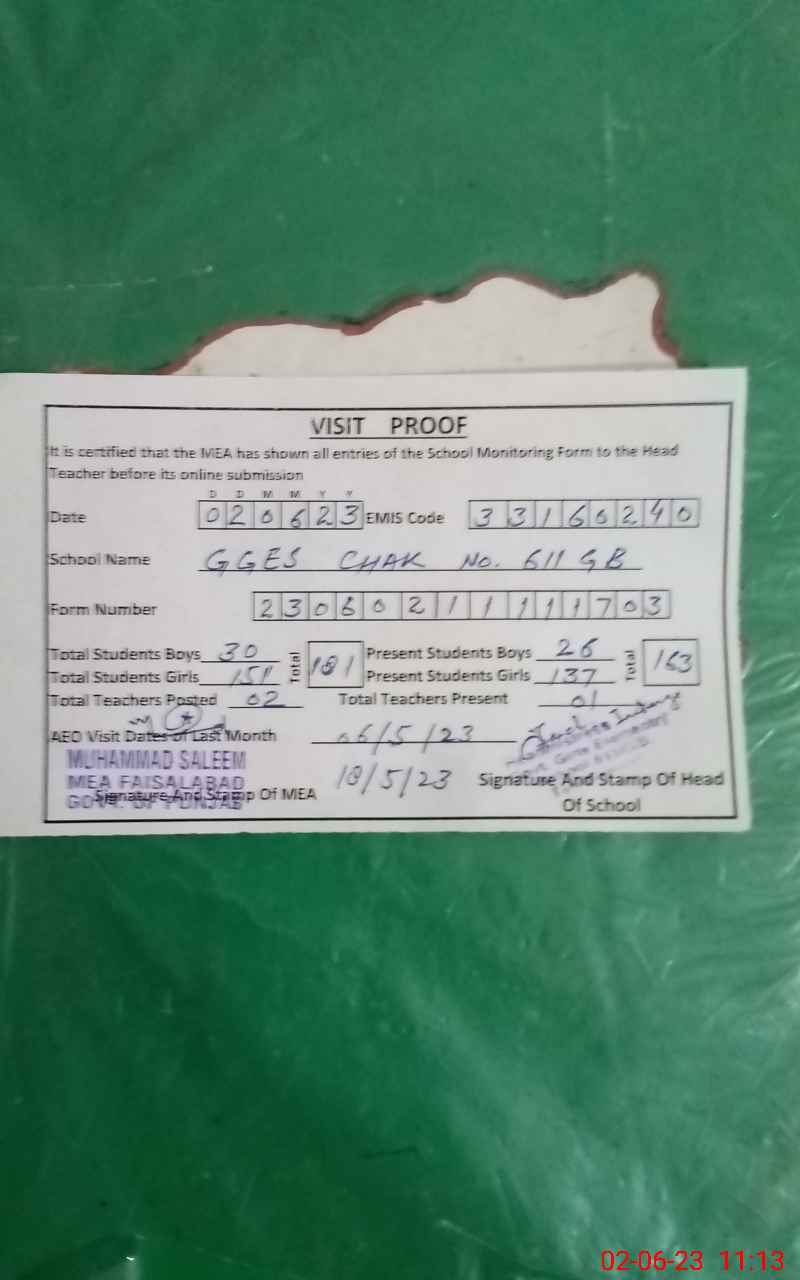 VISIT PROOF
It is certified that the MEA has shown all entries of the School Monitoring Form to the Head
Teacher before its online submission
D D M M Y Y
Date 020623 EMIS Code 33160240
School Name GGES CHAK NO. 611 GB
Form Number 230602111111703
Total Students Boys 30 Total 181 Present Students Boys 26 Total 163
Total Students Girls 151 Present Students Girls 137
Total Teachers Posted 02 Total Teachers Present 01
AEO Visit Dates of Last Month 06/5/23
18/5/23
MUHAMMAD SALEEM
MEA FAISALABAD
GOVT. OF PUNJAB
Signature And Stamp Of MEA
Signature And Stamp Of Head
Of School
02-06-23 11:13